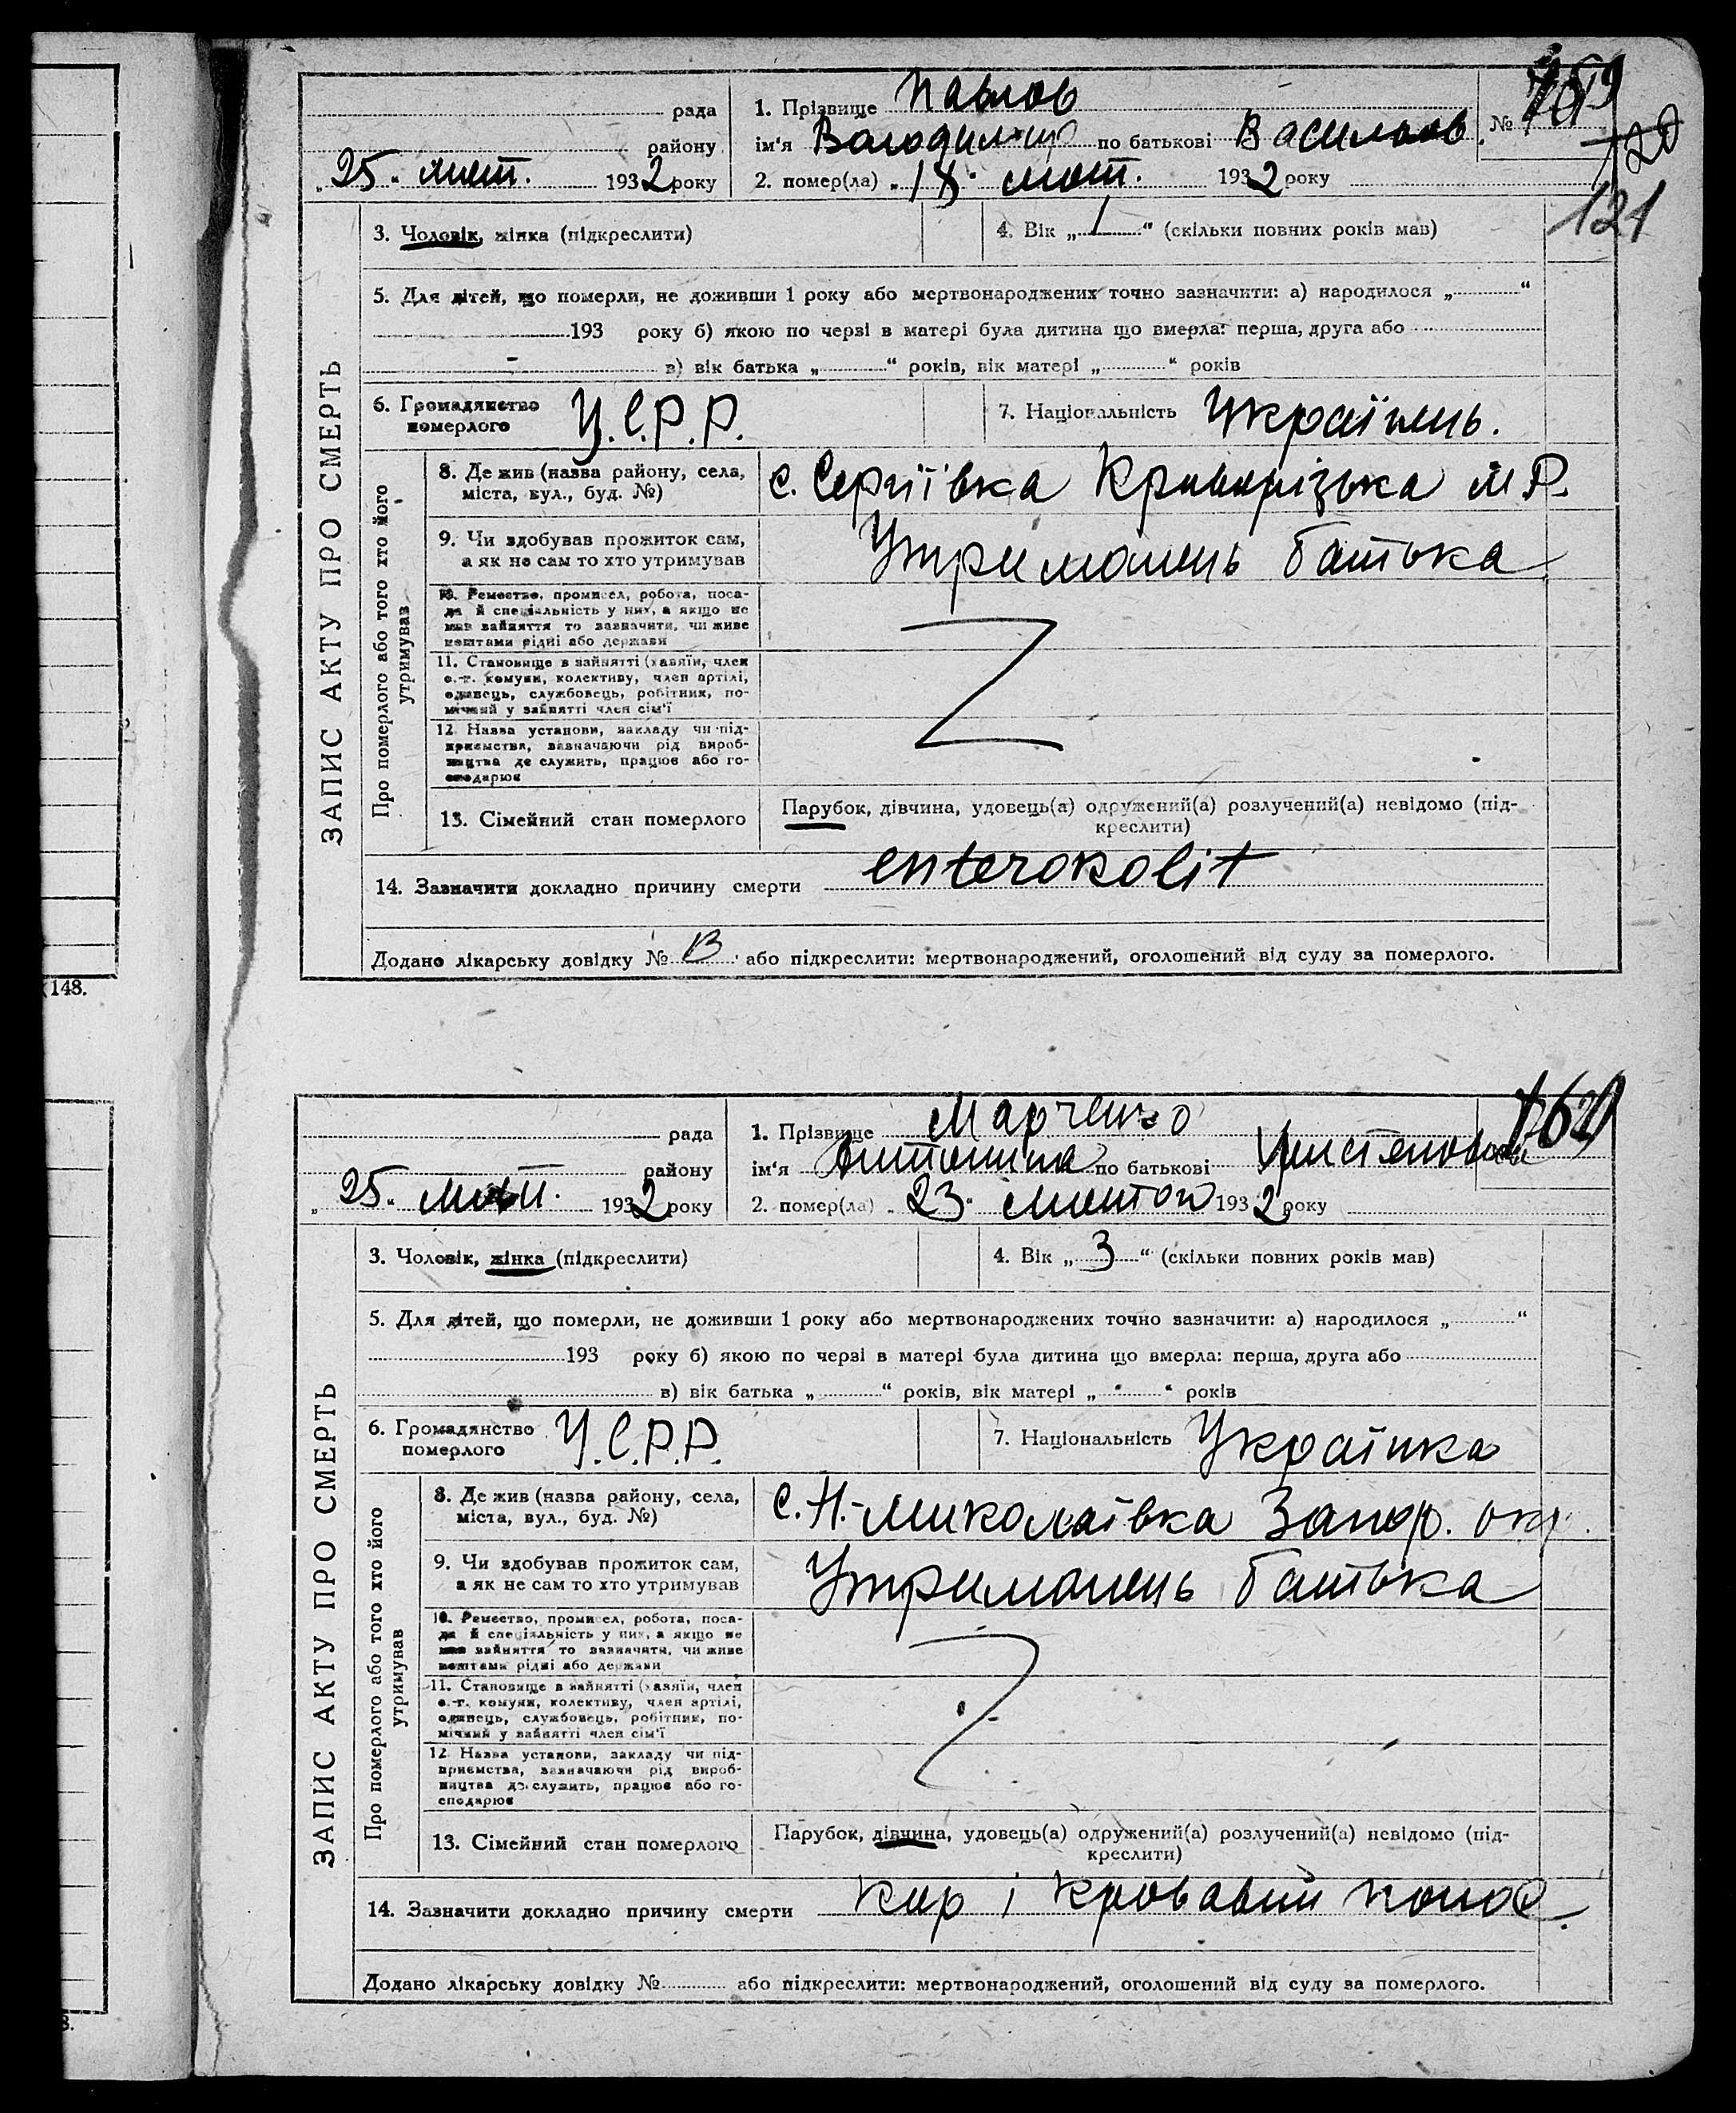 рада
району
„25“ лют. 1932 року
1. Прізвище Павлов
ім'я Володимир по батькові Васильов.
2. помер(ла) „18“ лют. 1932 року
№
120
121
ЗАПИС АКТУ ПРО СМЕРТЬ
3. Чоловік, жінка (підкреслити)
4. Вік „1“ (скільки повних років мав)
5. Для дітей, що померли, не доживши 1 року або мертвонароджених точно зазначити: а) народилося „ “
193 року б) якою по черзі в матері була дитина що вмерла: перша, друга або
в) вік батька „ “ років, вік матері „ “ років
6. Громадянство
померлого
У.С.Р.Р.
7. Національність Українець.
Про померлого або того хто його
утримував
8. Де жив (назва району, села,
міста, вул., буд. №)
с. Сергіївка Криворізька м Р.
9. Чи здобував прожиток сам,
а як не сам то хто утримував
Утриманець батька
10. Ремество, промисел, робота, поса-
да й спеціальність у них, а якщо не
мав зайняття то зазначити, чи живе
коштами рідні або держави
11. Становище в зайнятті (хазяїн, член
с.-г. комуни, колективу, член артілі,
одинець, службовець, робітник, по-
мічний у зайнятті член сім'ї
12. Назва установи, закладу чи під-
приємства, зазначаючи рід вироб-
ництва де служить, працює або го-
сподарює
13. Сімейний стан померлого
Парубок, дівчина, удовець(а) одружений(а) розлучений(а) невідомо (під-
креслити)
14. Зазначити докладно причину смерти enterokolit
Додано лікарську довідку № 13 або підкреслити: мертвонароджений, оголошений від суду за померлого.
148.
рада
району
„25“ лют. 1932 року
1. Прізвище Марченко
ім'я Антоніна по батькові
2. помер(ла) „23“ лютого 1932 року
ЗАПИС АКТУ ПРО СМЕРТЬ
3. Чоловік, жінка (підкреслити)
4. Вік „3“ (скільки повних років мав)
5. Для дітей, що померли, не доживши 1 року або мертвонароджених точно зазначити: а) народилося „ “
193 року б) якою по черзі в матері була дитина що вмерла: перша, друга або
в) вік батька „ “ років, вік матері „ “ років
6. Громадянство
померлого
У.С.Р.Р.
7. Національність Українка
Про померлого або того хто його
утримував
8. Де жив (назва району, села,
міста, вул., буд. №)
с. Н.-Миколаївка Запор. окр.
9. Чи здобував прожиток сам,
а як не сам то хто утримував
Утриманець батька
10. Ремество, промисел, робота, поса-
да й спеціальність у них, а якщо не
мав зайняття то зазначити, чи живе
коштами рідні або держави
11. Становище в зайнятті (хазяїн, член
с.-г. комуни, колективу, член артілі,
одинець, службовець, робітник, по-
мічний у зайнятті член сім'ї
12. Назва установи, закладу чи під-
приємства, зазначаючи рід вироб-
ництва де служить, працює або го-
сподарює
13. Сімейний стан померлого
Парубок, дівчина, удовець(а) одружений(а) розлучений(а) невідомо (під-
креслити)
14. Зазначити докладно причину смерти кир і кровавий понос.
Додано лікарську довідку № або підкреслити: мертвонароджений, оголошений від суду за померлого.